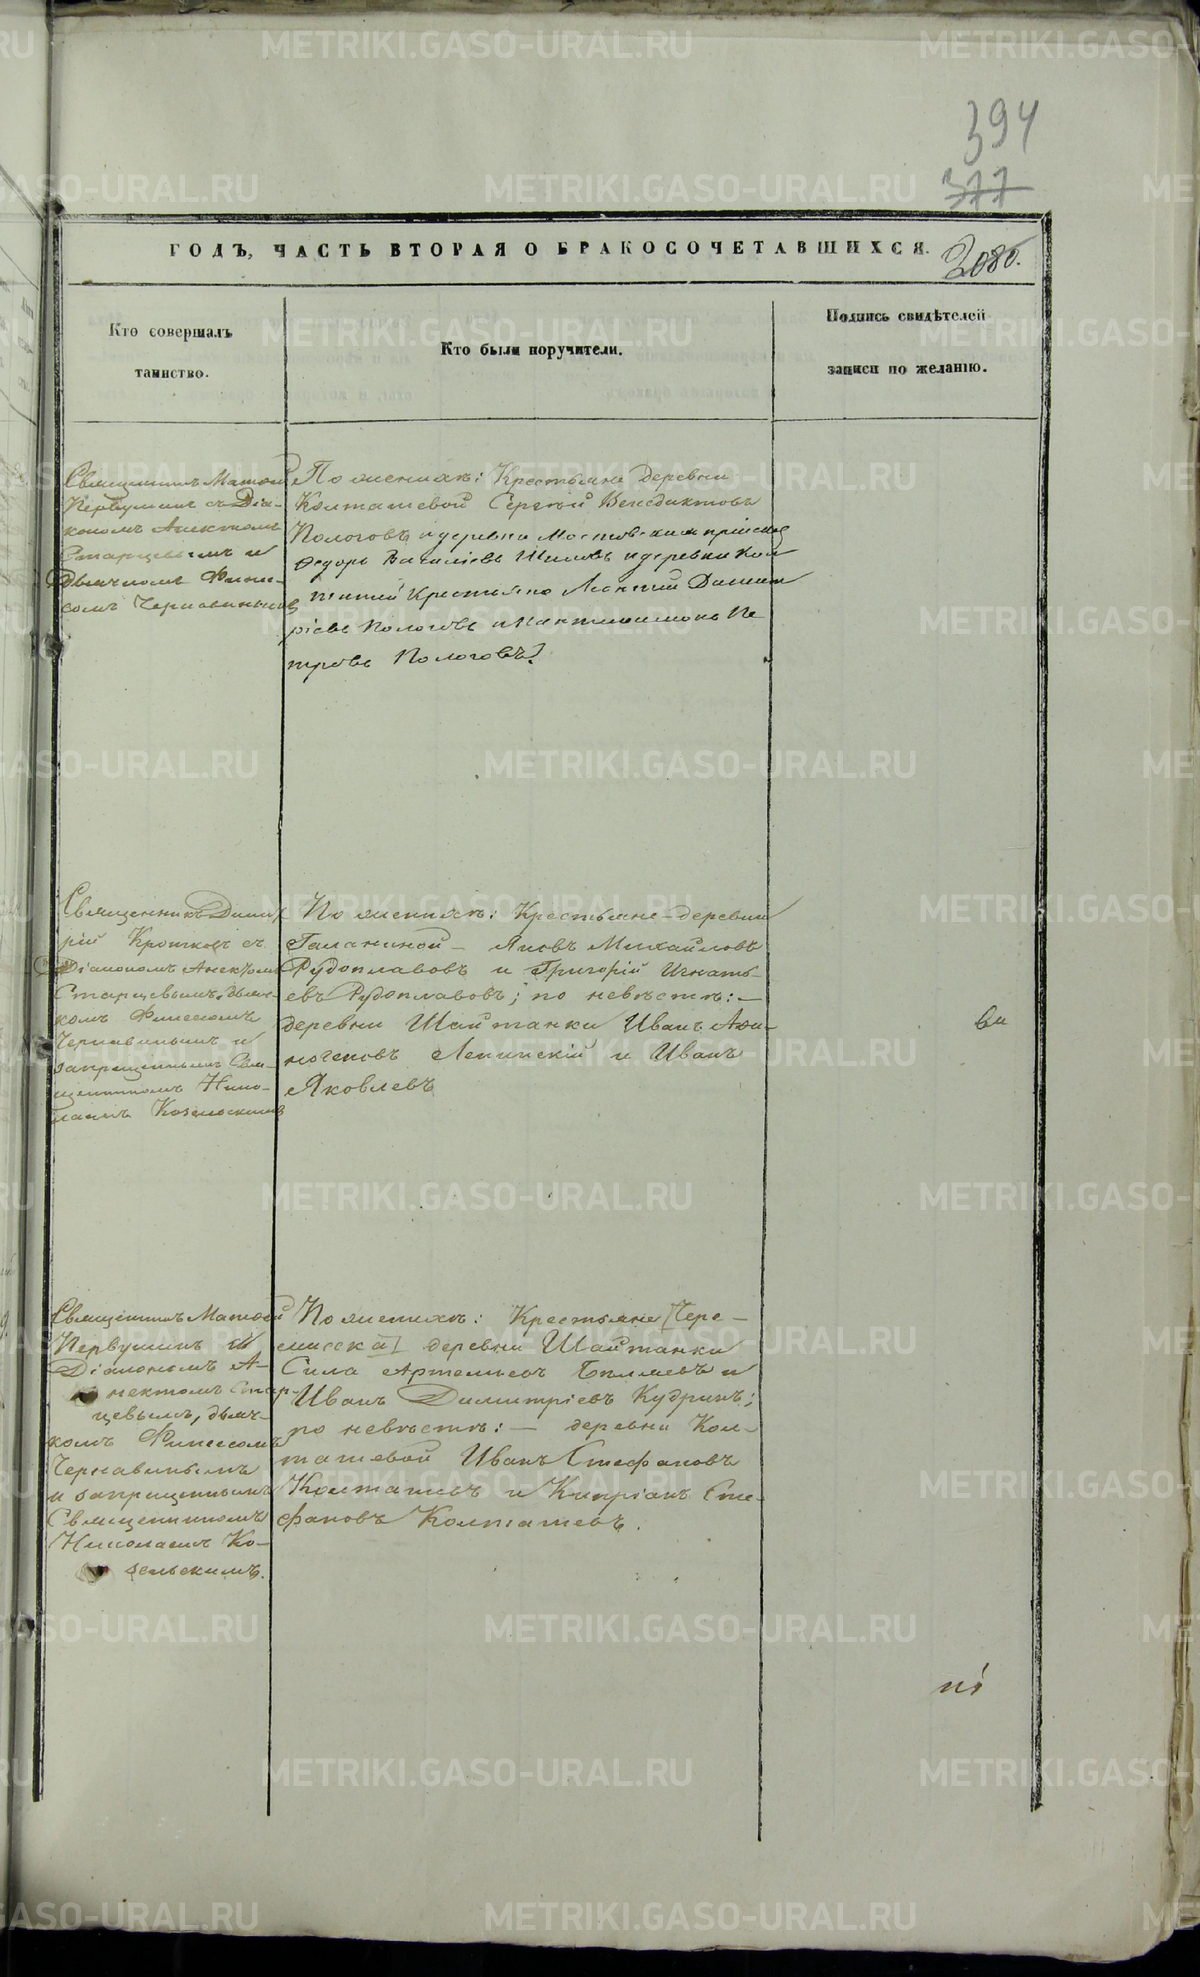 394
377
ГОДЪ, ЧАСТЬ ВТОРАЯ О БРАКОСОЧЕТАВШИХСЯ.
2086.
Кто совершалъ
таинство.
Кто были поручители.
Подпись свидѣтелей
записи по желанію.
Священникъ Матѳей
Первушинъ съ Діа-
кономъ Анектомъ
Старцевымъ и
дьячкомъ Финее-
сомъ Чернавинымъ
По женихѣ: Крестьяне деревни
Колташевой Сергѣй Венедиктовъ
Пологовъ и деревни Мостовской
Ѳедоръ Василіевъ Шиловъ и деревни Кол
ташевой Крестьяне Леонтій Димит
ріевъ Пологовъ и Пантелеимонъ Пе
тровъ Пологовъ.
Священникъ Димит
рій Кротковъ съ
Діакономъ Анектомъ
Старцевымъ, дьяч-
комъ Финеесомъ
Чернавинымъ и
запрещеннымъ Свя-
щенникомъ Нико-
лаемъ Козельскимъ
По женихѣ: Крестьяне деревни
Галаниной Яковъ Михайловъ
Рудоплавовъ и Григорій Игнать-
евъ Рудоплавовъ; по невѣстѣ: —
деревни Шайтанки Иванъ Аѳи-
ногеновъ Лепинскій и Иванъ
Яковлевъ
Священникъ Матѳей
Первушинъ съ
Діакономъ А-
нектомъ Стар-
цевымъ, дьяч-
комъ Финеесомъ
Чернавинымъ
и запрещеннымъ
Священникомъ
Николаемъ Ко-
зельскимъ.
По женихѣ: Крестьяне [Чере-
мисска] деревни Шайтанки
Сила Артемьевъ Бѣляевъ и
Иванъ Димитріевъ Кудринъ;
по невѣстѣ: — деревни Кол-
ташевой Иванъ Стефановъ
Колташевъ и Кипріанъ Сте-
фановъ Колташевъ.
METRIKI.GASO-URAL.RU